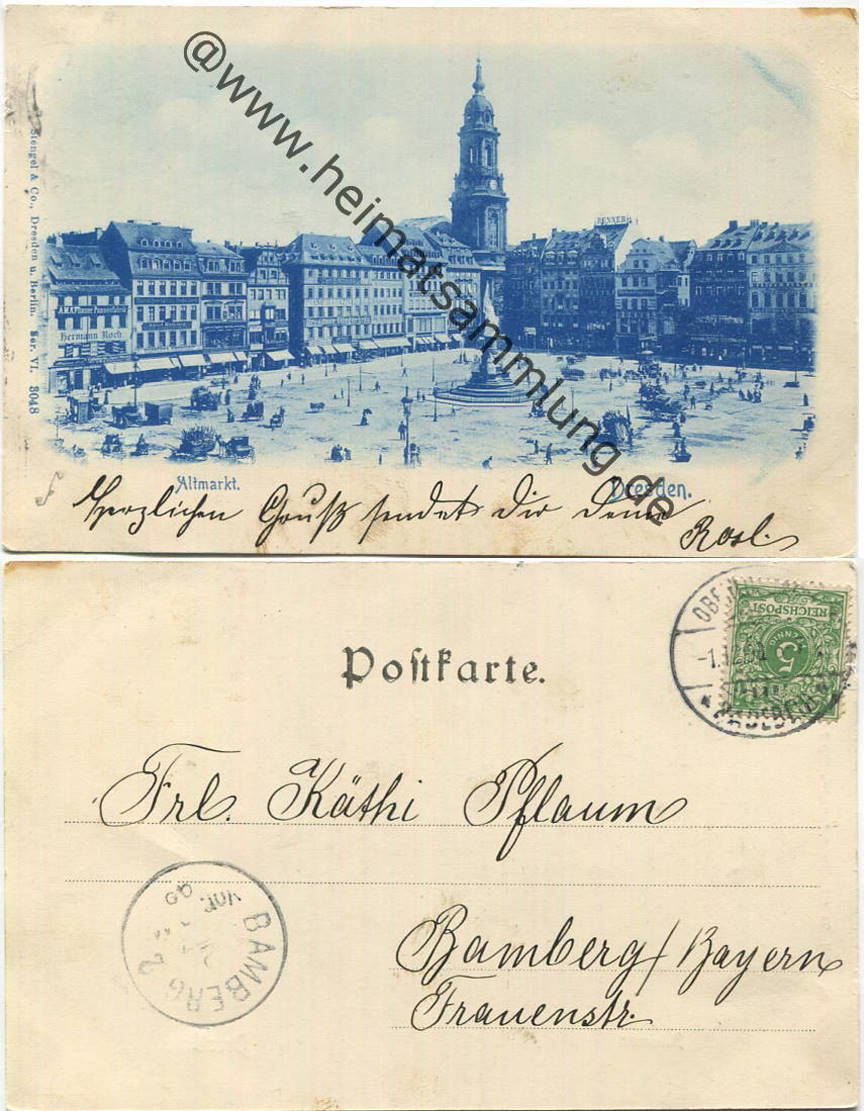 @www.heimatsammlung.de
Stengel & Co., Dresden u. Berlin. Ser. VI. 3048
RENNER
Hermann Koch
Altmarkt.
Dresden.
Herzlichen Gruß sendet Dir Deine
Rosl.
Postkarte.
REICHSPOST
5
PFENNIG
Frl. Käthi Pflaum
BAMBERG 2
Bamberg/Bayern
Frauenstr.